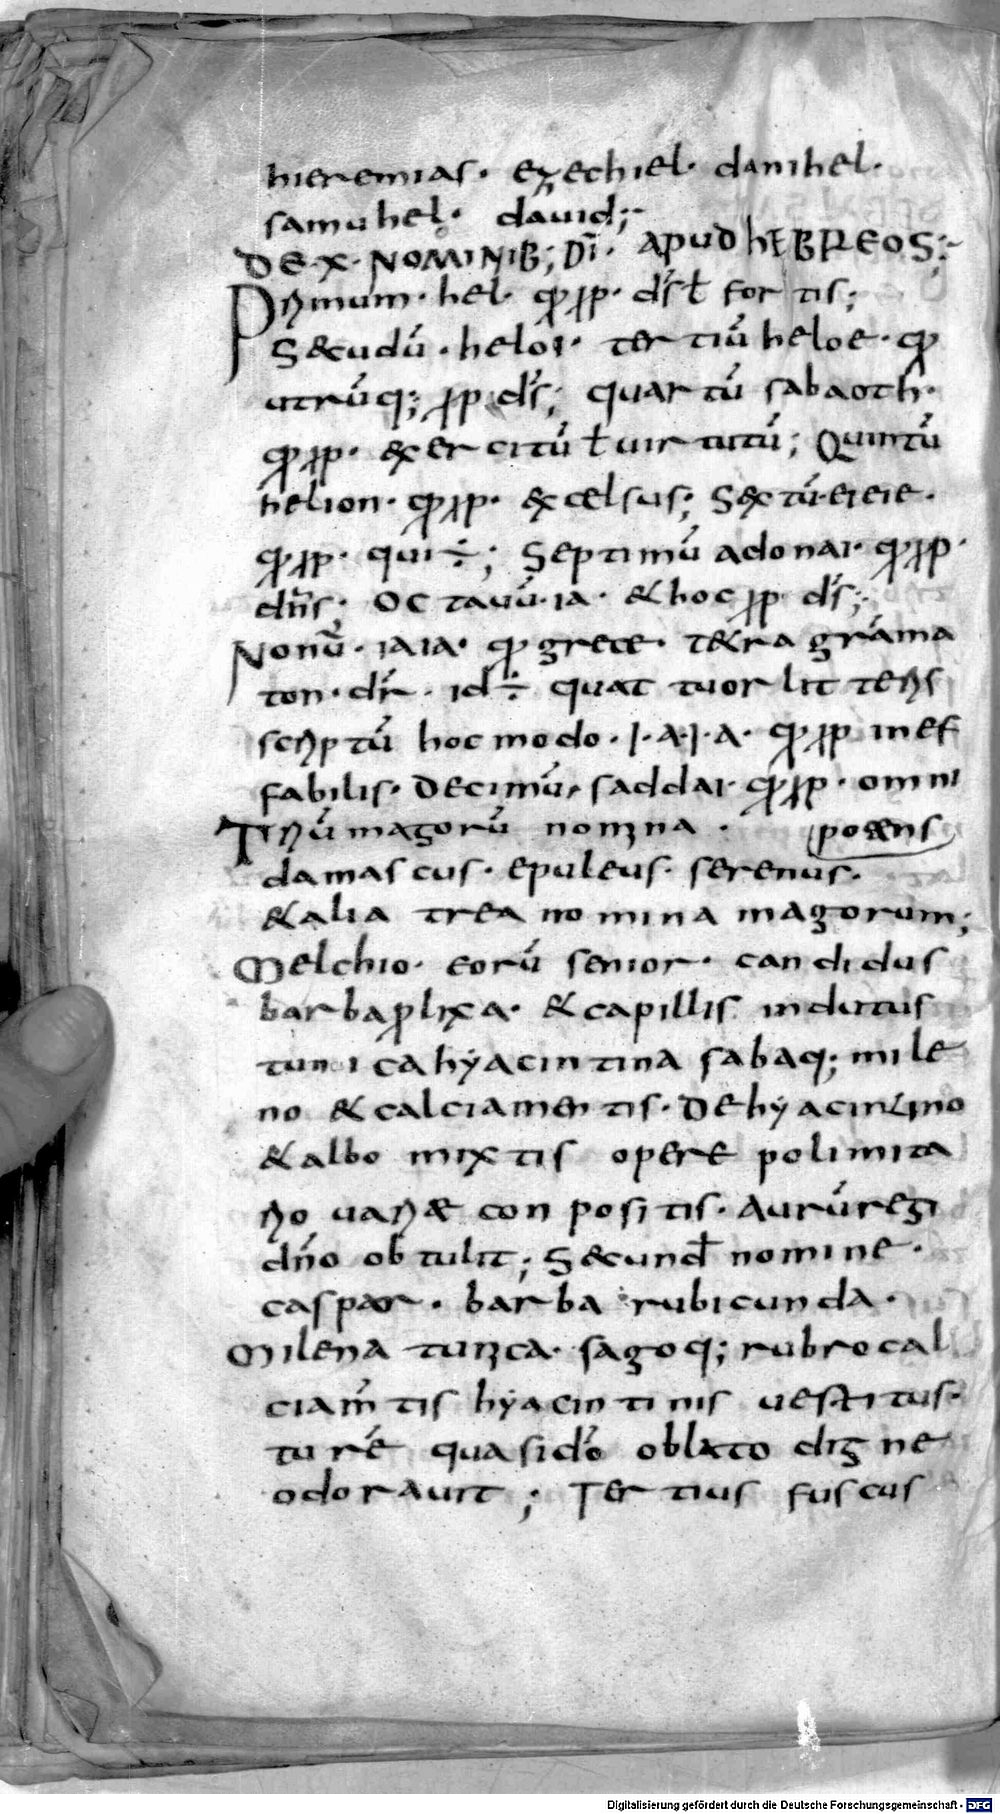 hieremias· ezechiel· danihel·
samuhel· dauid;
DE·X· NOMINIB; DI· APUD HEBREOS;
Primum· hel· qđ īp· dš ł for tis;
Secudū· heloi· ter tiū heloe· qđ
utrūq; īp dš; quar tū sabaoth·
qđ īp· exer citū ł uir tutū; Quintū
helion· qđ īp· excelsus; Sextū·eieie·
qđ īp· qui ÷; Septimū adonai· qđ īp·
dn̄s; Octauū·ia· & hoc īp dš;
Nonū· iaia· qđ grece· tetra grāma
ton· dr̄· id÷ quat tuor lit teris
scriptū hoc modo· I·A·I·A· qđ īp inef
fabilis· Decimū, saddai· qđ īp· omni
Triū magorū nomina· potens
damascus· epuleus· serenus·
& alia trea nomina magorum;
Melchio· eorū senior· candidus
barba plixa· & capillis indutus
tunica hyacintina sabaq; mile
no & calciamentis· De hyacintino
& albo mixtis opere polimita
rio uariæ con positis· Aurū regi
dn̄o obtulit; Secund̄ nomine·
caspar· barba rubicunda·
Milena tunica· sagoq; rubro cal
ciam̄tis hyacintinis uestitus·
turē quasi dō oblato digne
odorauit; Tertius fuscus
Digitalisierung gefördert durch die Deutsche Forschungsgemeinschaft - DFG